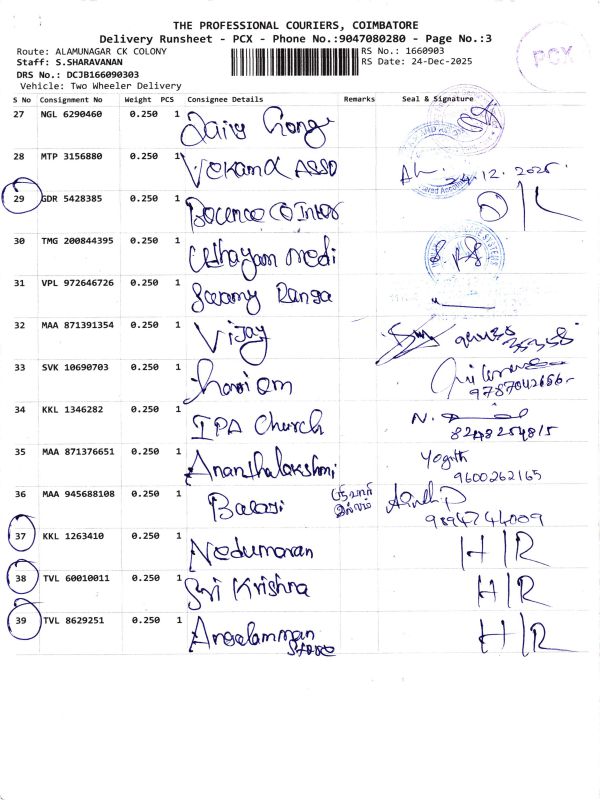 THE PROFESSIONAL COURIERS, COIMBATORE
Delivery Runsheet - PCX - Phone No.:9047080280 - Page No.:3
Route: ALAMUNAGAR CK COLONY
RS No.: 1660903
Staff: S.SHARAVANAN
RS Date: 24-Dec-2025
DRS No.: DCJB166090303
Vehicle: Two Wheeler Delivery
PCX
S No Consignment No Weight PCS Consignee Details Remarks Seal & Signature
27 NGL 6290460 0.250 1
28 MTP 3156880 0.250 1 Vekama Asso 24.12.2025
29 GDR 5428385 0.250 1 D/L
30 TMG 200844395 0.250 1 Uthayam medi
31 VPL 972646726 0.250 1 Swamy Ranga
32 MAA 871391354 0.250 1 Vijay
33 SVK 10690703 0.250 1 Hari om
9787042666
34 KKL 1346282 0.250 1 IPA Church N.
8248254815
35 MAA 871376651 0.250 1 Ananthalakshmi Yogith
9600262165
36 MAA 945688108 0.250 1 Balaji
இல்லம் 9894744009
37 KKL 1263410 0.250 1 Nedumaran H/R
38 TVL 60010011 0.250 1 Sri Krishna H/R
39 TVL 8629251 0.250 1 Angalamman H/R
Store